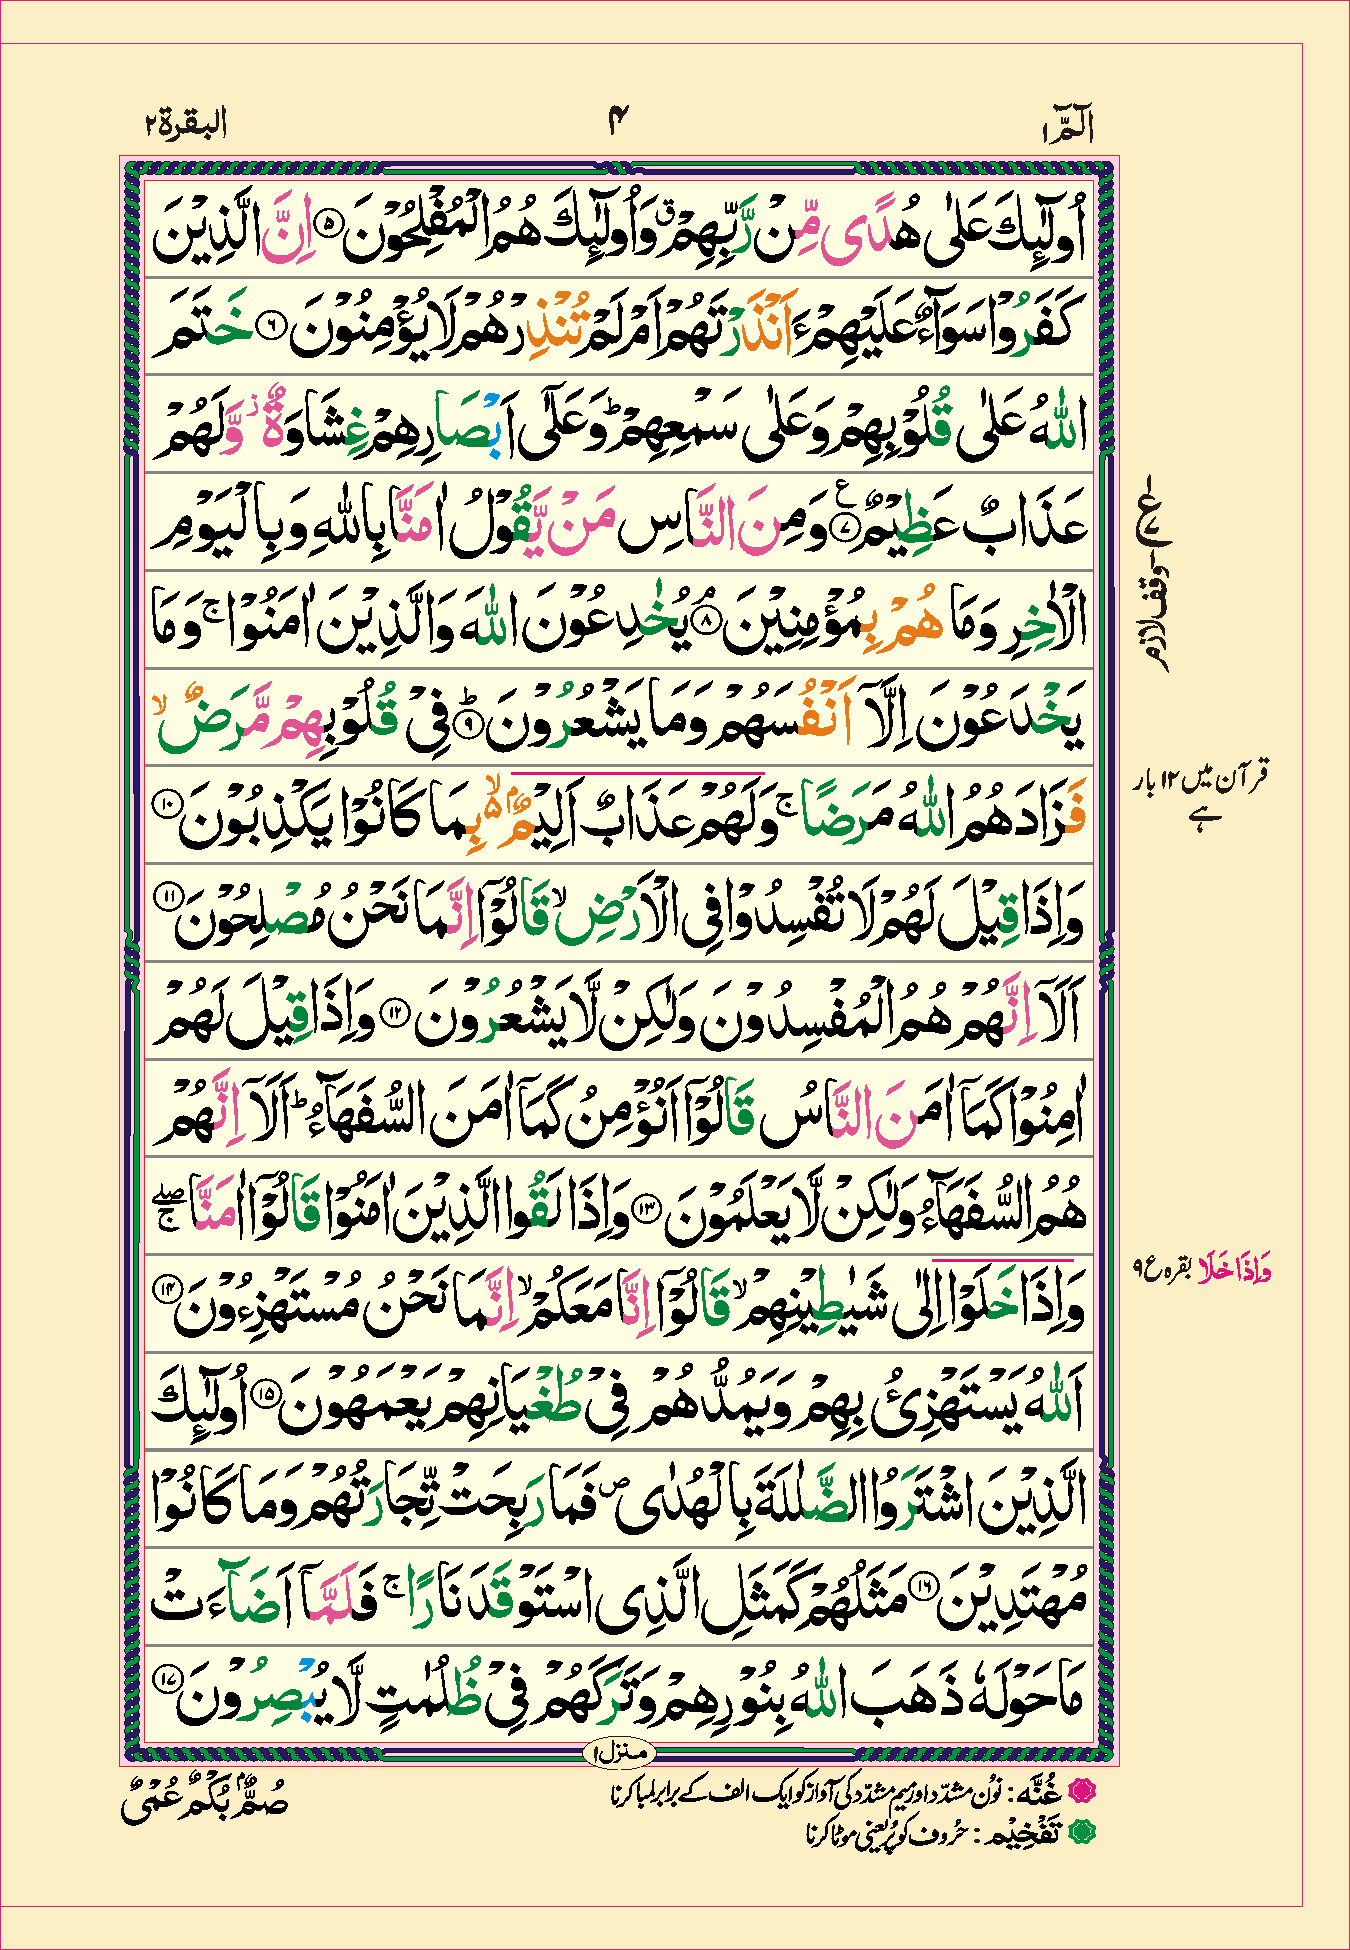 الٓمّٓ ۱
۴
البقرة ۲
اُولٰٓئِكَ عَلٰى هُدًى مِّنْ رَّبِّهِمْ ۗ وَاُولٰٓئِكَ هُمُ الْمُفْلِحُوْنَ ۝۵ اِنَّ الَّذِيْنَ
كَفَرُوْا سَوَآءٌ عَلَيْهِمْ ءَاَنْذَرْتَهُمْ اَمْ لَمْ تُنْذِرْهُمْ لَا يُؤْمِنُوْنَ ۝۶ خَتَمَ
اللّٰهُ عَلٰى قُلُوْبِهِمْ وَعَلٰى سَمْعِهِمْ ؕ وَعَلٰٓى اَبْصَارِهِمْ غِشَاوَةٌ ز وَّلَهُمْ
عَذَابٌ عَظِيْمٌ ۝۷ ع وَمِنَ النَّاسِ مَنْ يَّقُوْلُ اٰمَنَّا بِاللّٰهِ وَبِالْيَوْمِ
الْاٰخِرِ وَمَا هُمْ بِمُؤْمِنِيْنَ ۝۸ۘ يُخٰدِعُوْنَ اللّٰهَ وَالَّذِيْنَ اٰمَنُوْا ۚ وَمَا
يَخْدَعُوْنَ اِلَّآ اَنْفُسَهُمْ وَمَا يَشْعُرُوْنَ ۝۹ؕ فِيْ قُلُوْبِهِمْ مَّرَضٌ ۙ
فَزَادَهُمُ اللّٰهُ مَرَضًا ۚ وَلَهُمْ عَذَابٌ اَلِيْمٌۢ ۬ۙ۵ بِمَا كَانُوْا يَكْذِبُوْنَ ۝۱۰
وَاِذَا قِيْلَ لَهُمْ لَا تُفْسِدُوْا فِى الْاَرْضِ ۙ قَالُوْٓا اِنَّمَا نَحْنُ مُصْلِحُوْنَ ۝۱۱
اَلَآ اِنَّهُمْ هُمُ الْمُفْسِدُوْنَ وَلٰكِنْ لَّا يَشْعُرُوْنَ ۝۱۲ وَاِذَا قِيْلَ لَهُمْ
اٰمِنُوْا كَمَآ اٰمَنَ النَّاسُ قَالُوْٓا اَنُؤْمِنُ كَمَآ اٰمَنَ السُّفَهَآءُ ؕ اَلَآ اِنَّهُمْ
هُمُ السُّفَهَآءُ وَلٰكِنْ لَّا يَعْلَمُوْنَ ۝۱۳ وَاِذَا لَقُوا الَّذِيْنَ اٰمَنُوْا قَالُوْٓا اٰمَنَّا ۖۚ
وَاِذَا خَلَوْا اِلٰى شَيٰطِيْنِهِمْ ۙ قَالُوْٓا اِنَّا مَعَكُمْ ۙ اِنَّمَا نَحْنُ مُسْتَهْزِءُوْنَ ۝۱۴
اَللّٰهُ يَسْتَهْزِئُ بِهِمْ وَيَمُدُّهُمْ فِيْ طُغْيَانِهِمْ يَعْمَهُوْنَ ۝۱۵ اُولٰٓئِكَ
الَّذِيْنَ اشْتَرَوُا الضَّلٰلَةَ بِالْهُدٰى ص فَمَا رَبِحَتْ تِّجَارَتُهُمْ وَمَا كَانُوْا
مُهْتَدِيْنَ ۝۱۶ مَثَلُهُمْ كَمَثَلِ الَّذِى اسْتَوْقَدَ نَارًا ۚ فَلَمَّآ اَضَآءَتْ
مَا حَوْلَهٗ ذَهَبَ اللّٰهُ بِنُوْرِهِمْ وَتَرَكَهُمْ فِيْ ظُلُمٰتٍ لَّا يُبْصِرُوْنَ ۝۱۷
وقف لازم
قرآن میں ۱۲ بار
ہے
وَاِذَا خَلَا بقرہ ع ۹
منزل ۱
غُنَّه : نوُن مشدّد اور میم مشدّد کی آواز کو ایک الف کے برابر لمبا کرنا
تَفْخِيْم : حُروف کو پُر یعنی موٹا کرنا
صُمٌّۢ بُكْمٌ عُمْيٌ